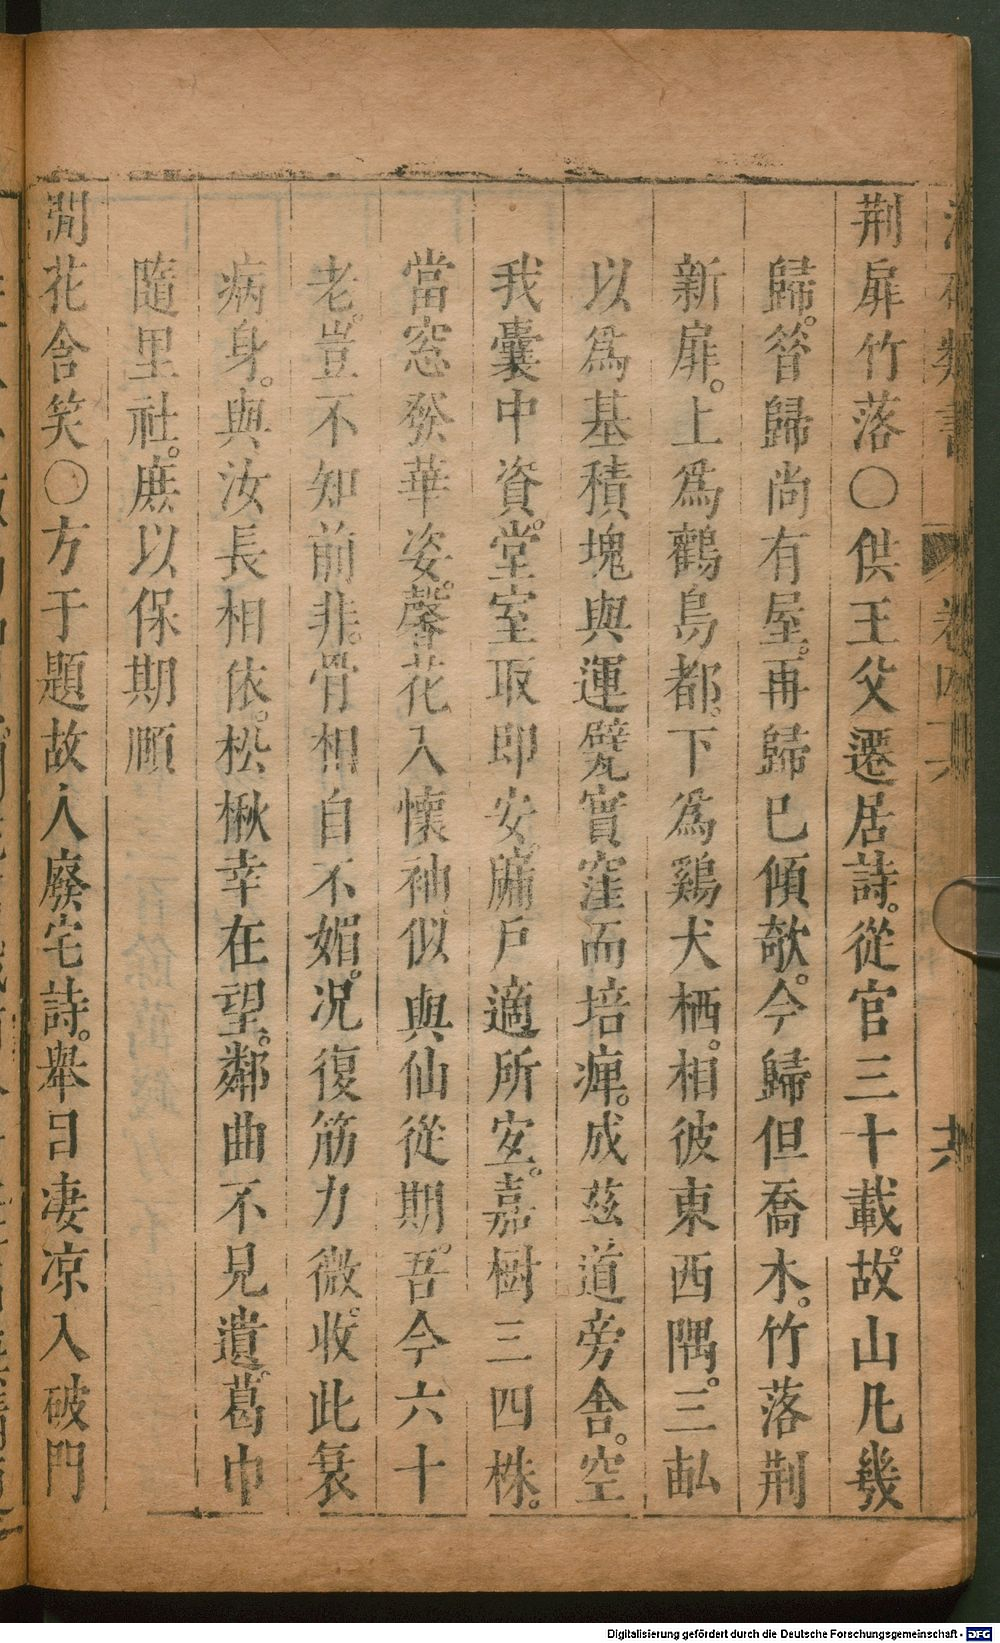 荆扉竹落〇供王父遷居詩。從官三十載。故山凡幾
歸。昝歸尚有屋。再歸巳傾欹。今歸但喬木。竹落荆
新扉。上爲鸛鳥都。下爲鷄犬栖。相彼東西隅。三畝
以爲基積塊與運甓實窪而培痺。成茲道旁舍。空
我囊中資。堂室取即安。牗戶適所安。嘉樹三四株。
當窓發華姿。馨花入懷袖似與仙從期。吾今六十
老。豈不知前非。骨相自不媚。况復筋力微。收此衰
病身。與汝長相依。松楸幸在望。鄰曲不見遺。葛巾
隨里社。庶以保期順
閒花含笑〇方于題故人廢宅詩。舉目凄凉入破門
Digitalisierung gefördert durch die Deutsche Forschungsgemeinschaft - DFG